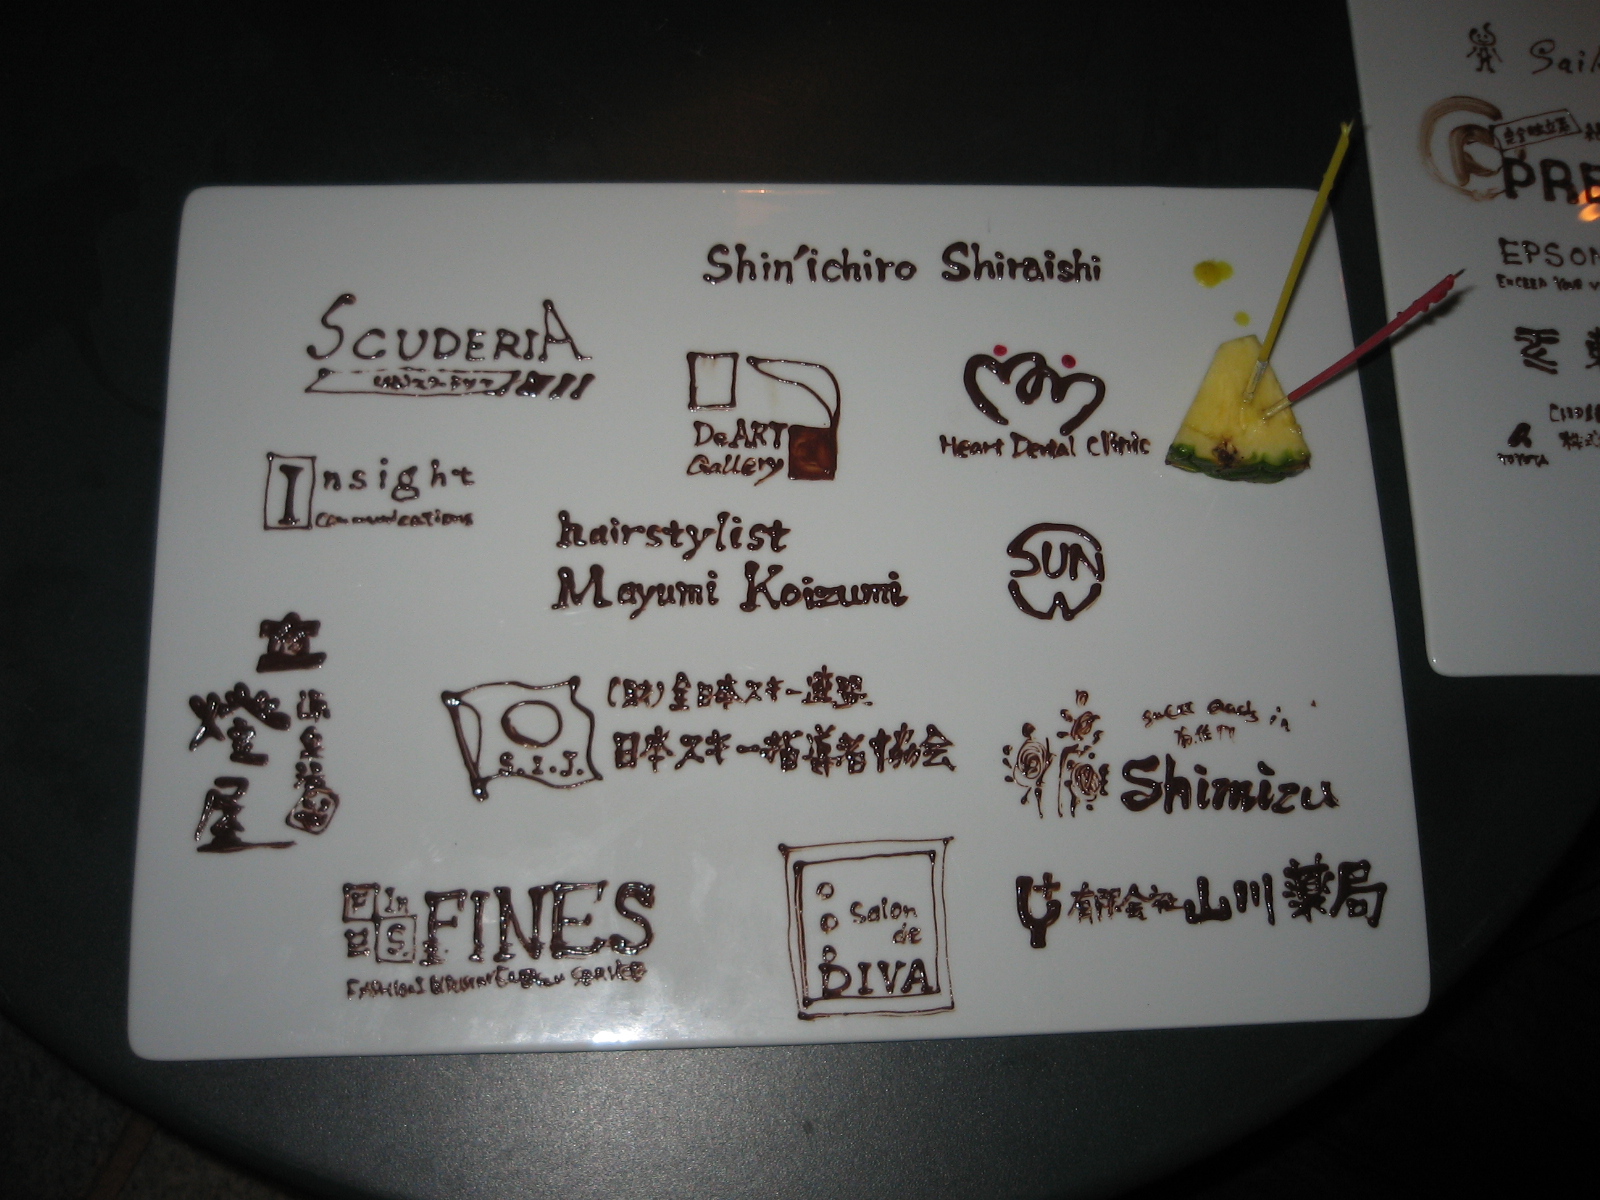 Shin'ichiro Shiraishi
SCUDERIA
DeART
Gallery
Heart Dental Clinic
Insight
Communications
hairstylist
Mayumi Koizumi
SUN
登
屋
S.I.J.
(財)全日本スキー連盟
日本スキー指導者協会
Shimizu
F In
E S
FINES
Salon
de
DIVA
有限会社山川薬局
PRE
EPSON
EXCEED YOUR
TOYOTA
株式